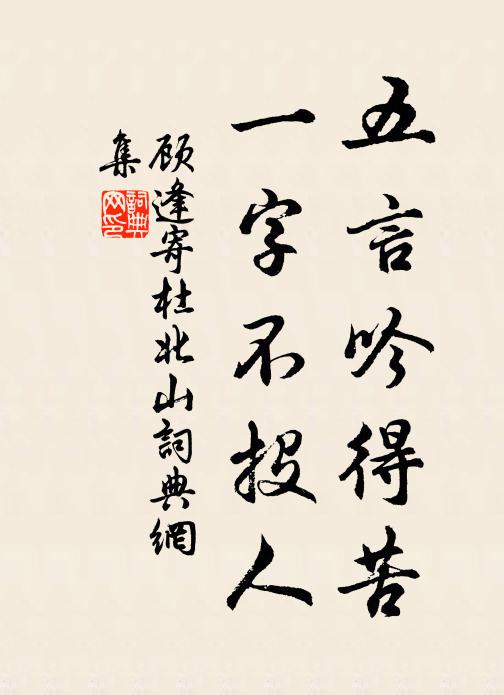 五言吟得苦
一字不投人
顾逢寄杜北山詞典網
集
詞典网印